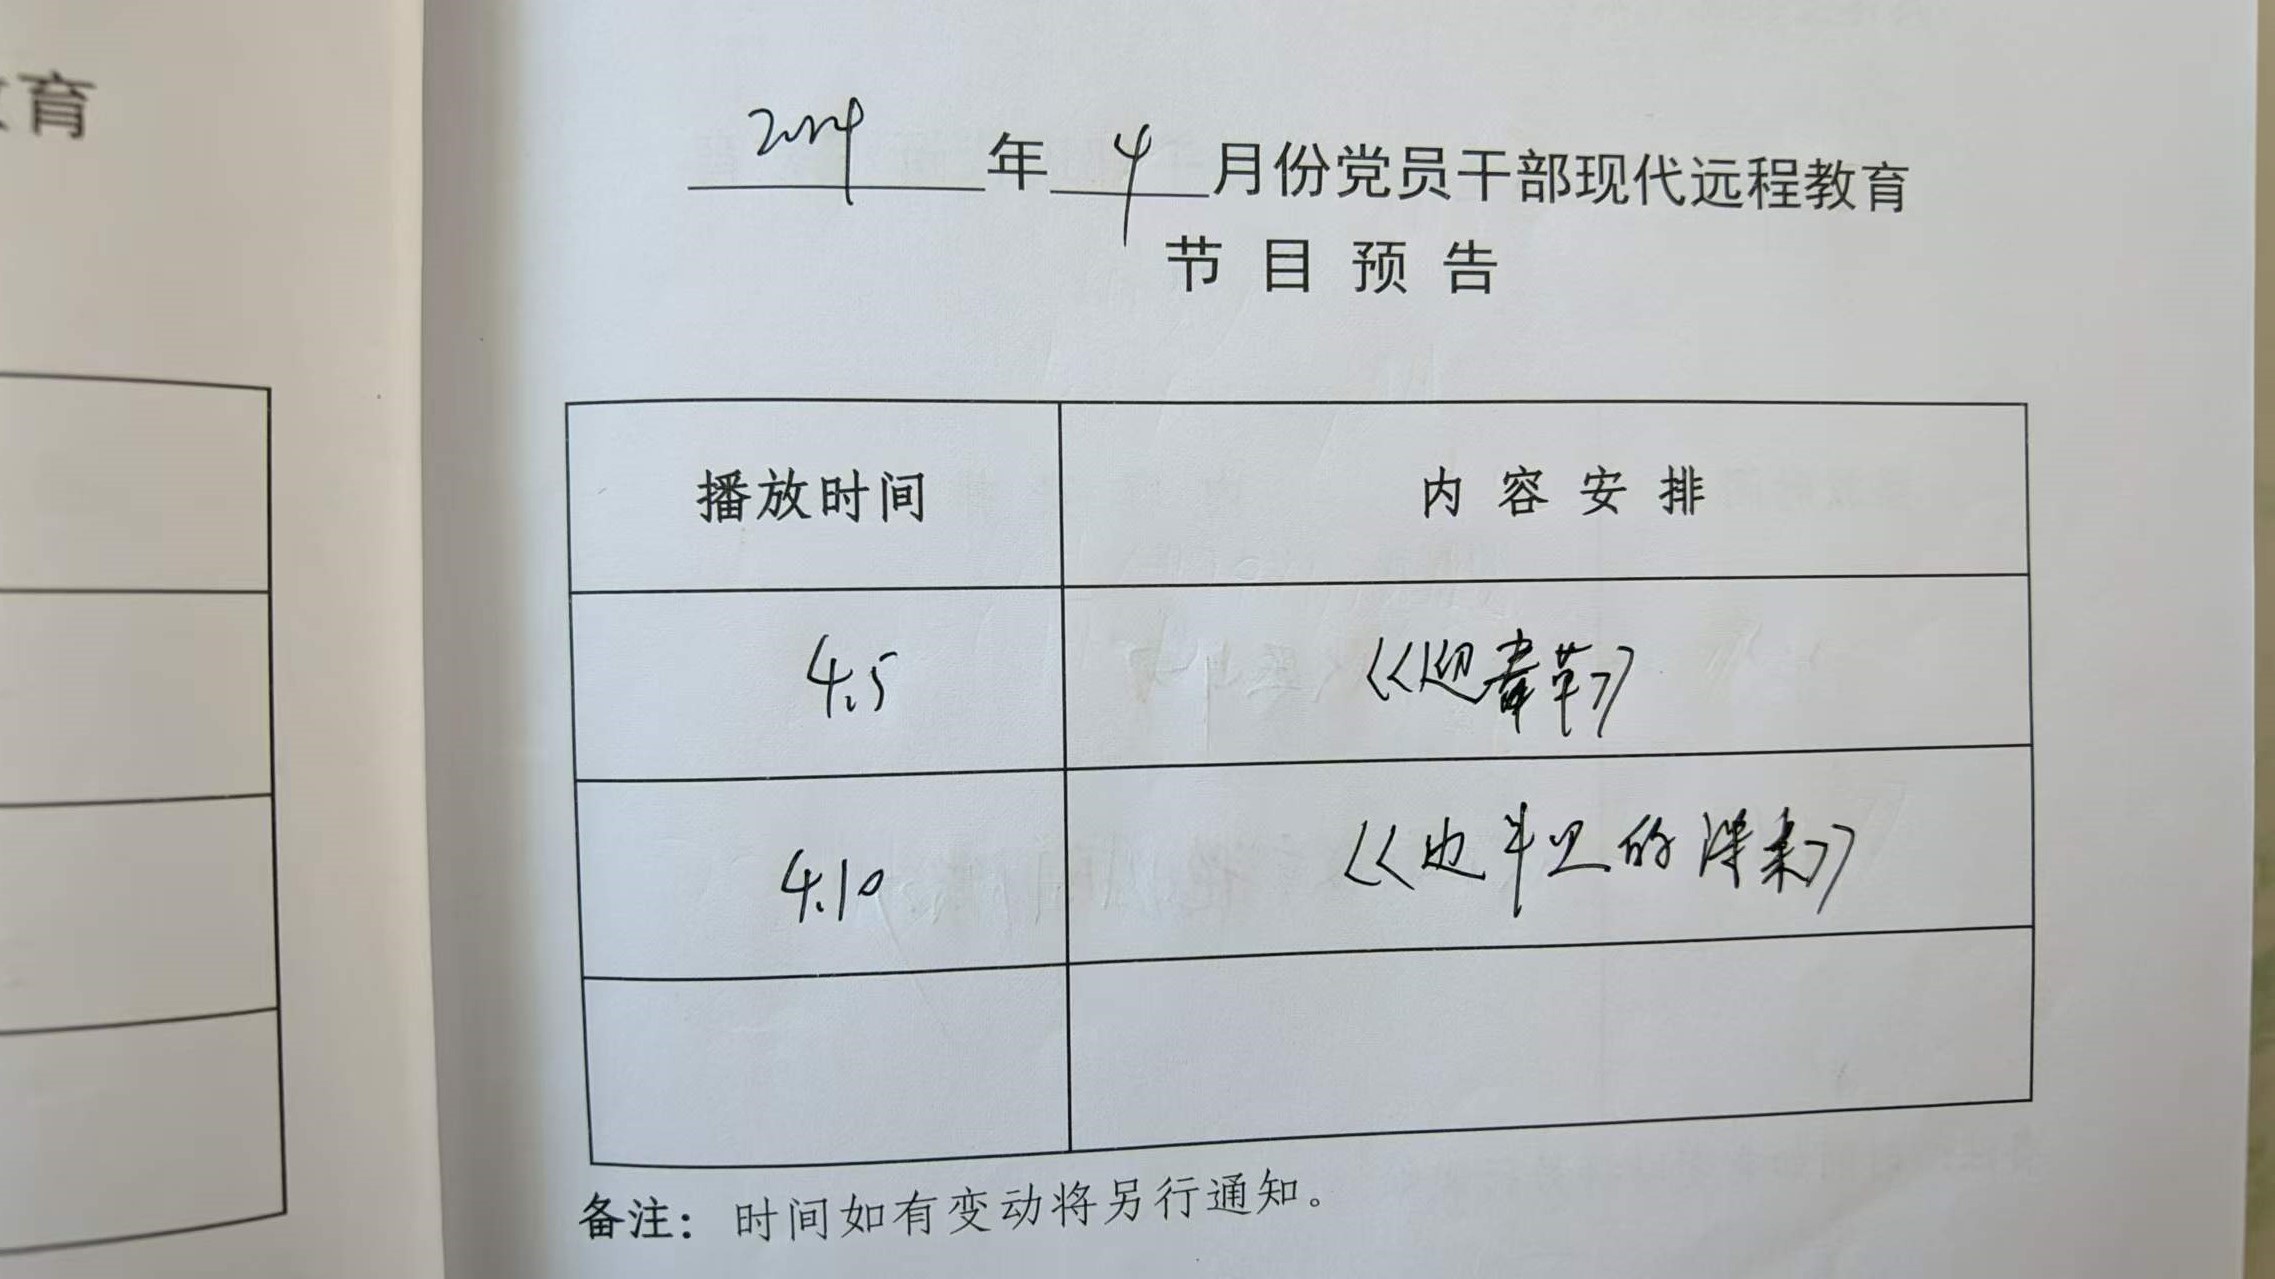 育
2024年4月份党员干部现代远程教育
节目预告
播放时间 内容安排
4.5 《迎春草》
4.10 《 的 》
备注：时间如有变动将另行通知。